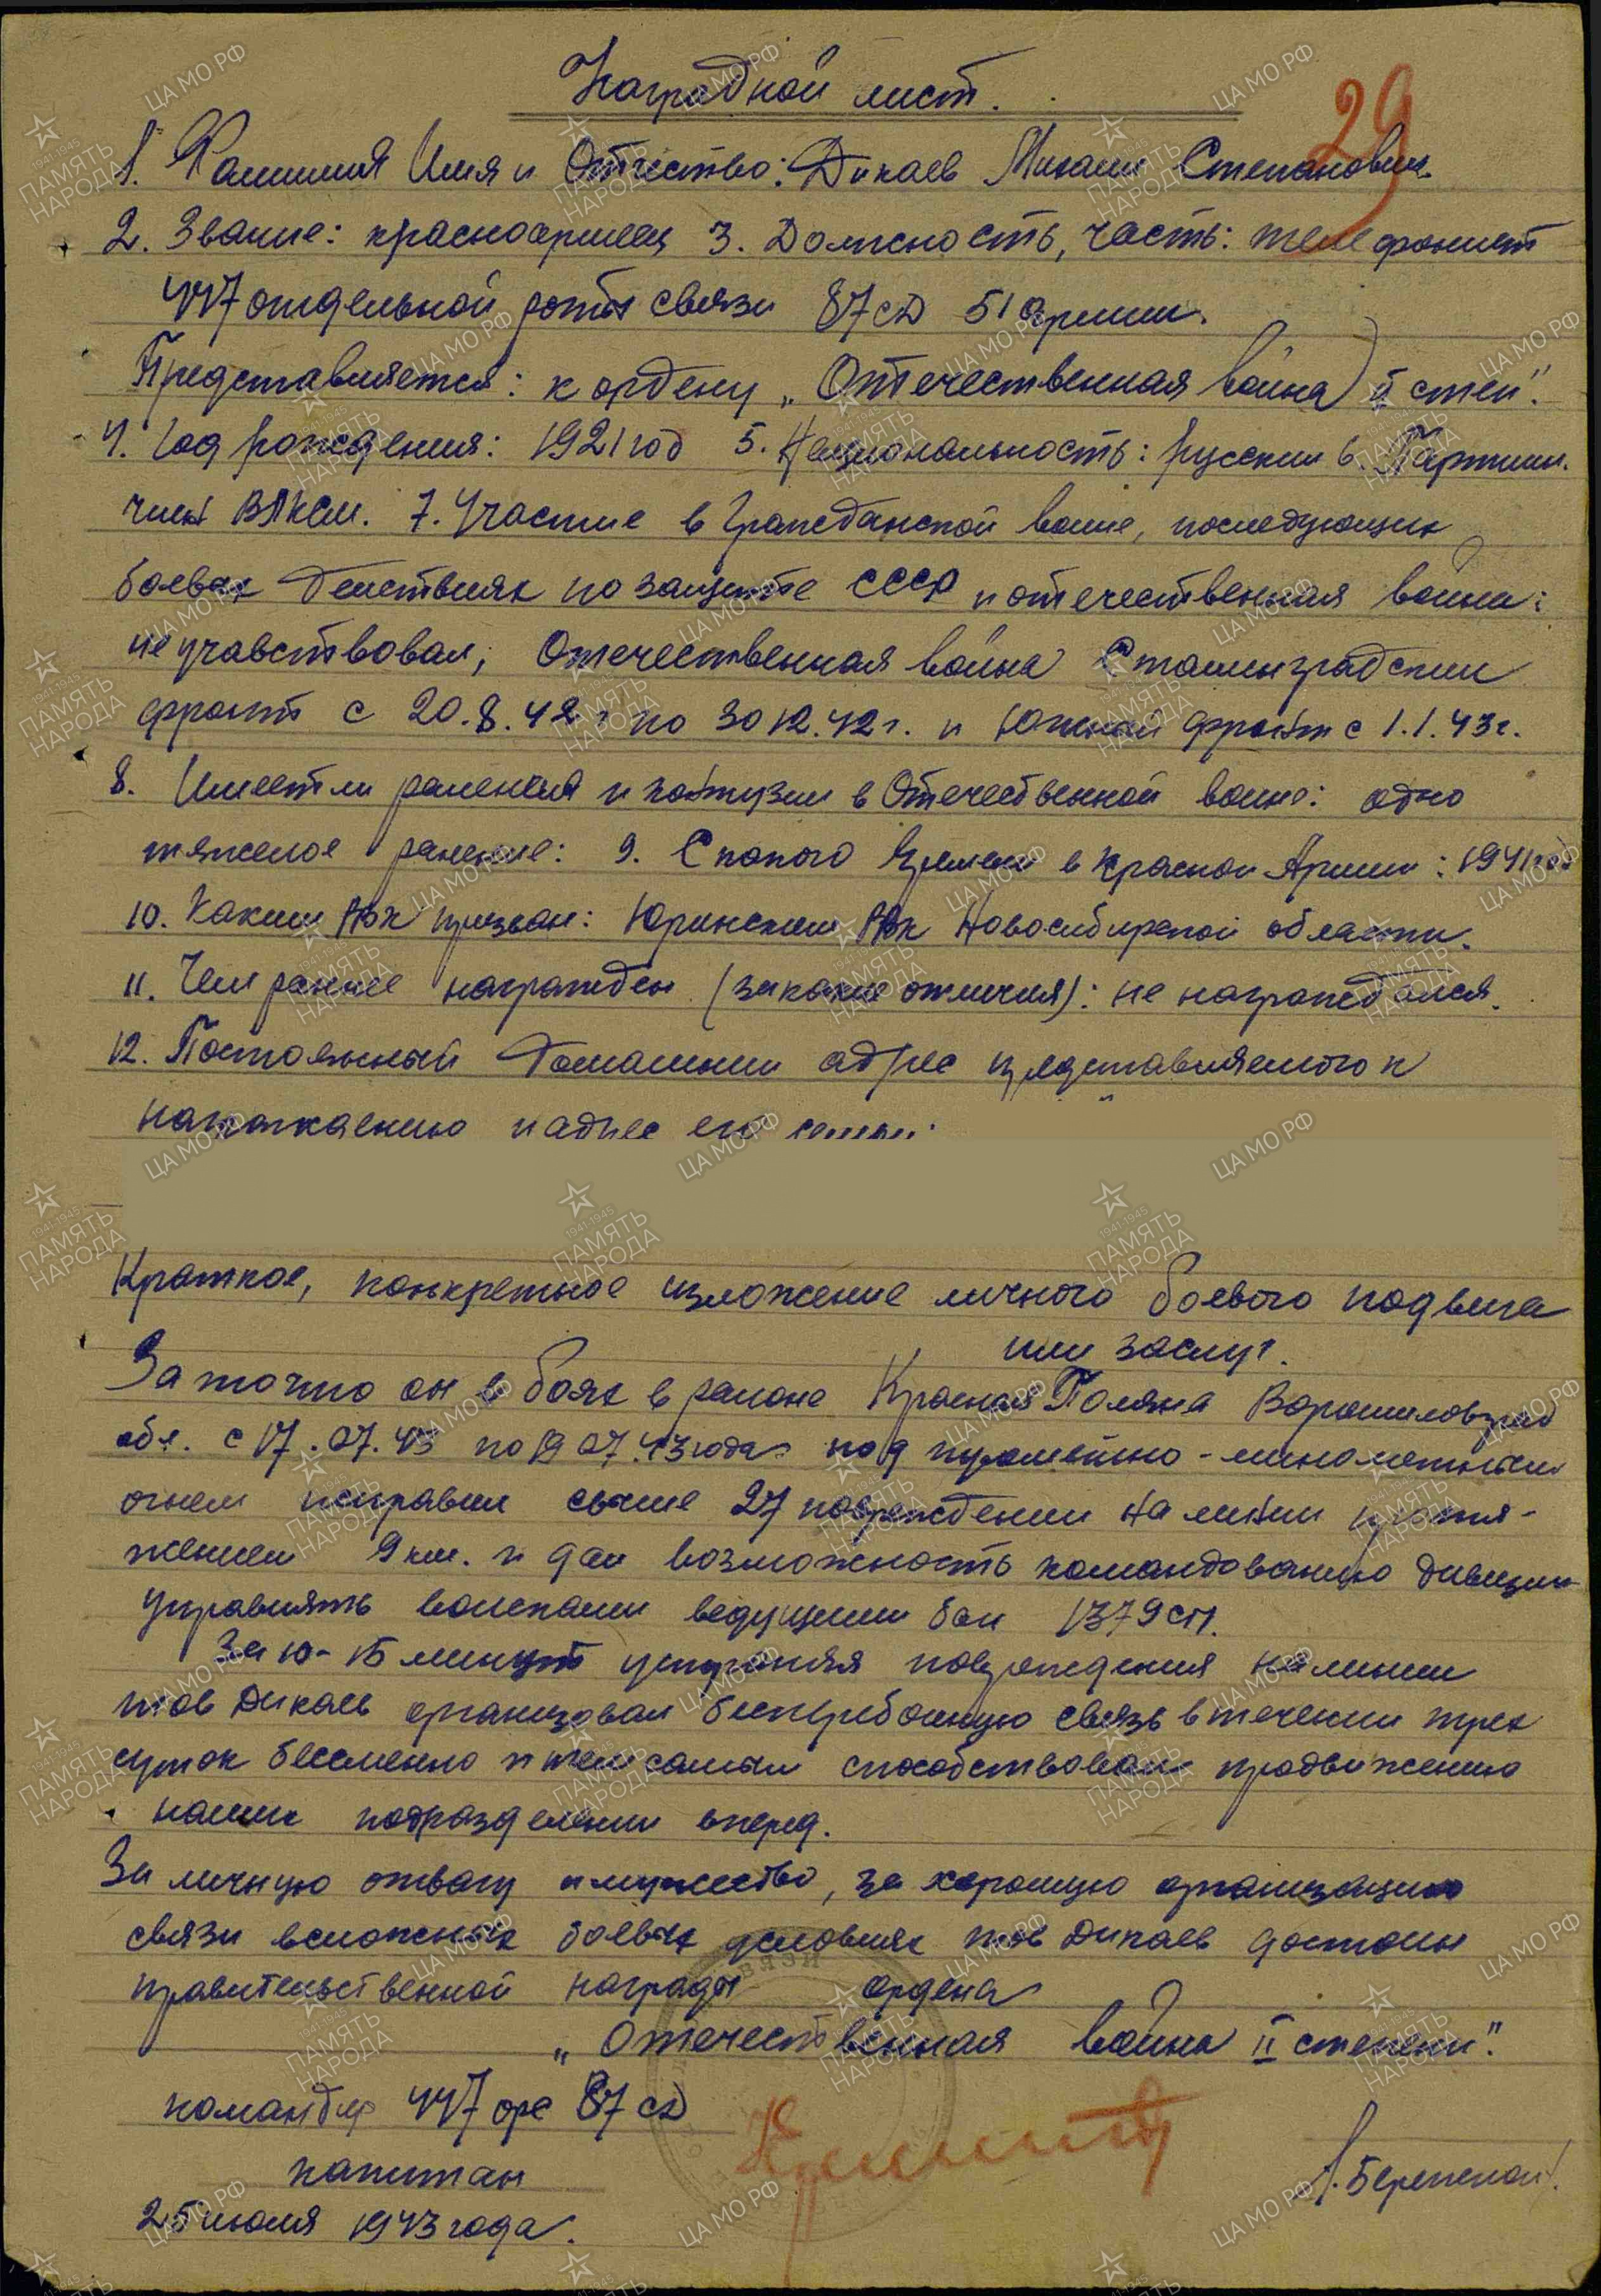 29
Наградной лист.
1. Фамилия Имя и Отчество: Дикаев Михаил Степанович.
2. Звание: красноармеец 3. Должность, часть: телефонист
447 отдельной роты связи 87 сд 51 армии.
Представляется: к ордену „Отечественная война II степ".
4. Год рождения: 1921 год 5. Национальность: русский 6. Партийн.
член ВЛКСМ. 7. Участие в Гражданской войне, последующих
боевых действиях по защите СССР и отечественная война:
не учавствовал, Отечественная война Сталинградский
фронт с 20.8.42 г по 30 12.42 г. и Южный фронт с 1.1.43 г.
8. Имеет ли ранения и контузии в Отечественной войне: одно
тяжелое ранение: 9. С какого времени в Красной Армии: 1941 год
10. Каким РВК призван: Юргинским РВК Новосибирской области.
11. Чем раннее награжден (за какие отличия): не награждался.
12. Постоянный домашний адрес представляемого к
награждению и адрес его семьи:
Краткое, конкретное изложение личного боевого подвига
или заслуг.
За то что он в боях в районе Красная Поляна Ворошиловград
обл. с 17.07.43 по 19 07.43 года под пулеметно-минометным
огнем исправил свыше 27 повреждений на линии протя-
жением 9 км. и дал возможность командованию дивизии
управлять войсками ведущими бой 1379 сп.
За 10-15 минут устраняя повреждения на линии
тов Дикаев организовал бесперебойную связь в течении трех
суток бессменно и тем самым способствовал продвижению
наших подразделений вперед.
За личную отвагу и мужество, за хорошую организацию
связи в сложных боевых условиях тов Дикаев достоин
правительственной награды ордена
„Отечественная война II степени".
командир 447 орс 87 сд
капитан
/.Бережной/.
25 июля 1943 года.
СВЯЗИ
ЦА МО РФ
1941-1945
ПАМЯТЬ
НАРОДА